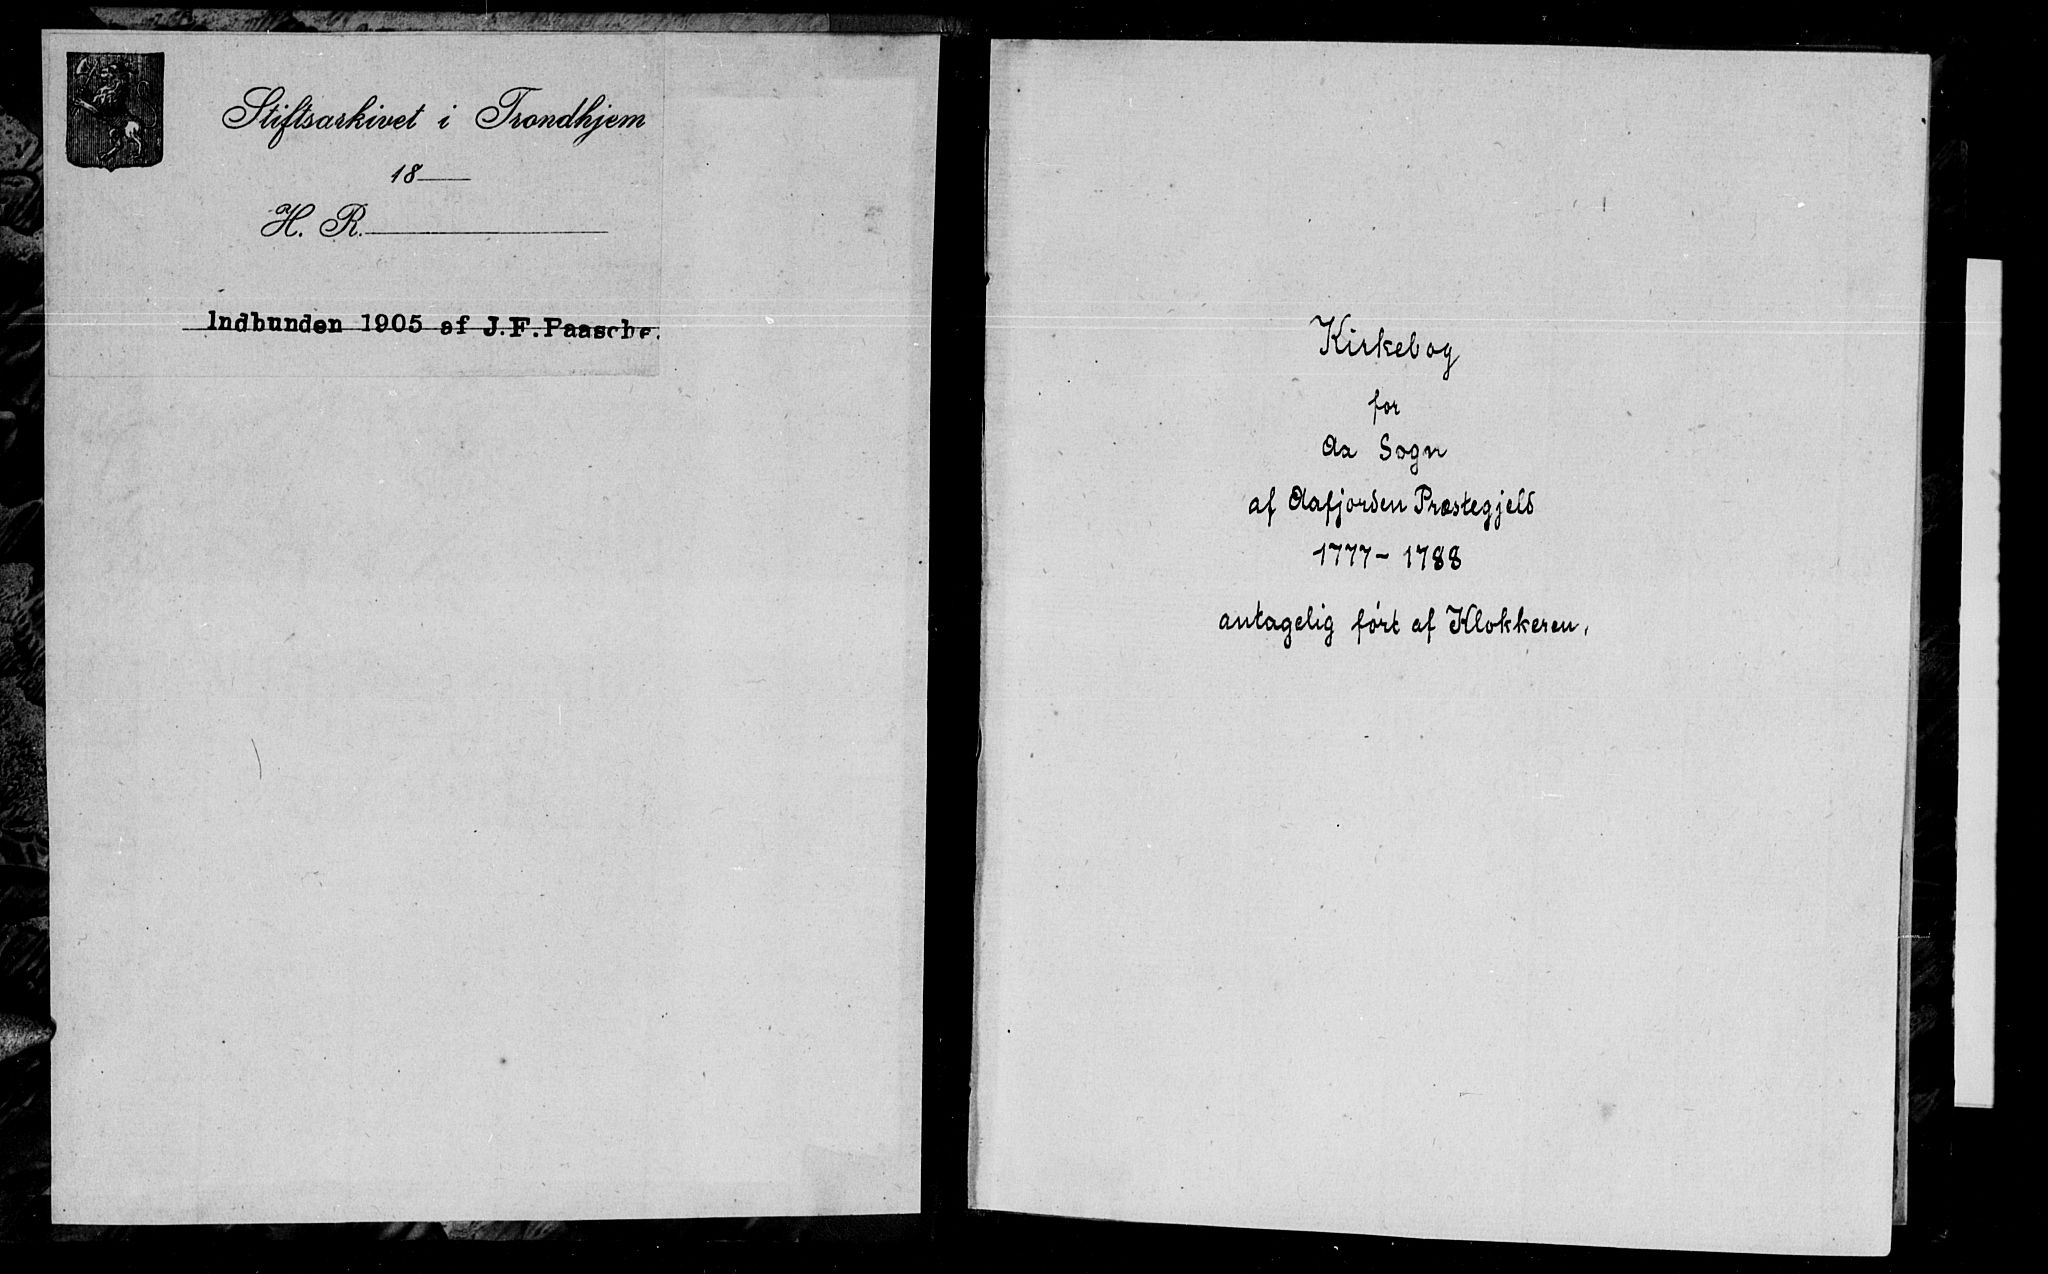 Stiftsarkivet i Trondhjem
18
H. R.
Indbunden 1905 af J.F.Paasche.
Kirkebog
for
Aa Sogn
af Aafjorden Præstegjeld
1777- 1788
antagelig ført af Klokkeren.